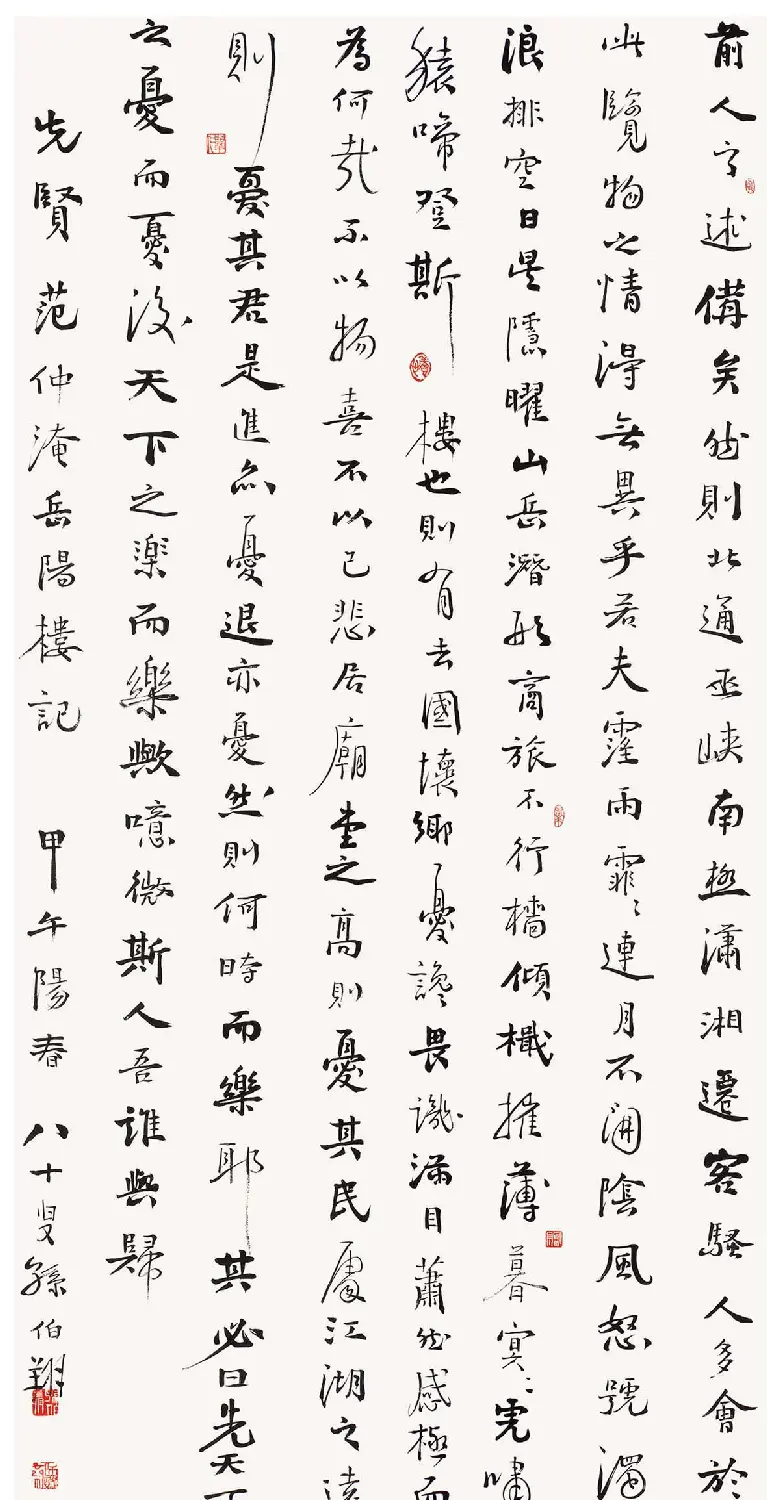 前人之述備矣然則北通巫峽南極瀟湘遷客騷人多會於
此覽物之情得無異乎若夫霪雨霏〻連月不開陰風怒號濁
浪排空日星隱曜山岳潛形商旅不行檣傾檝摧薄暮冥〻虎嘯
猿啼登斯樓也則有去國懷鄉憂讒畏譏滿目蕭然感極而
為何哉不以物喜不以己悲居廟堂之高則憂其民處江湖之遠
則憂其君是進亦憂退亦憂然則何時而樂耶其必曰先天下
之憂而憂後天下之樂而樂歟噫微斯人吾誰與歸
先賢范仲淹岳陽樓記 甲午陽春 八十叟孫伯翔